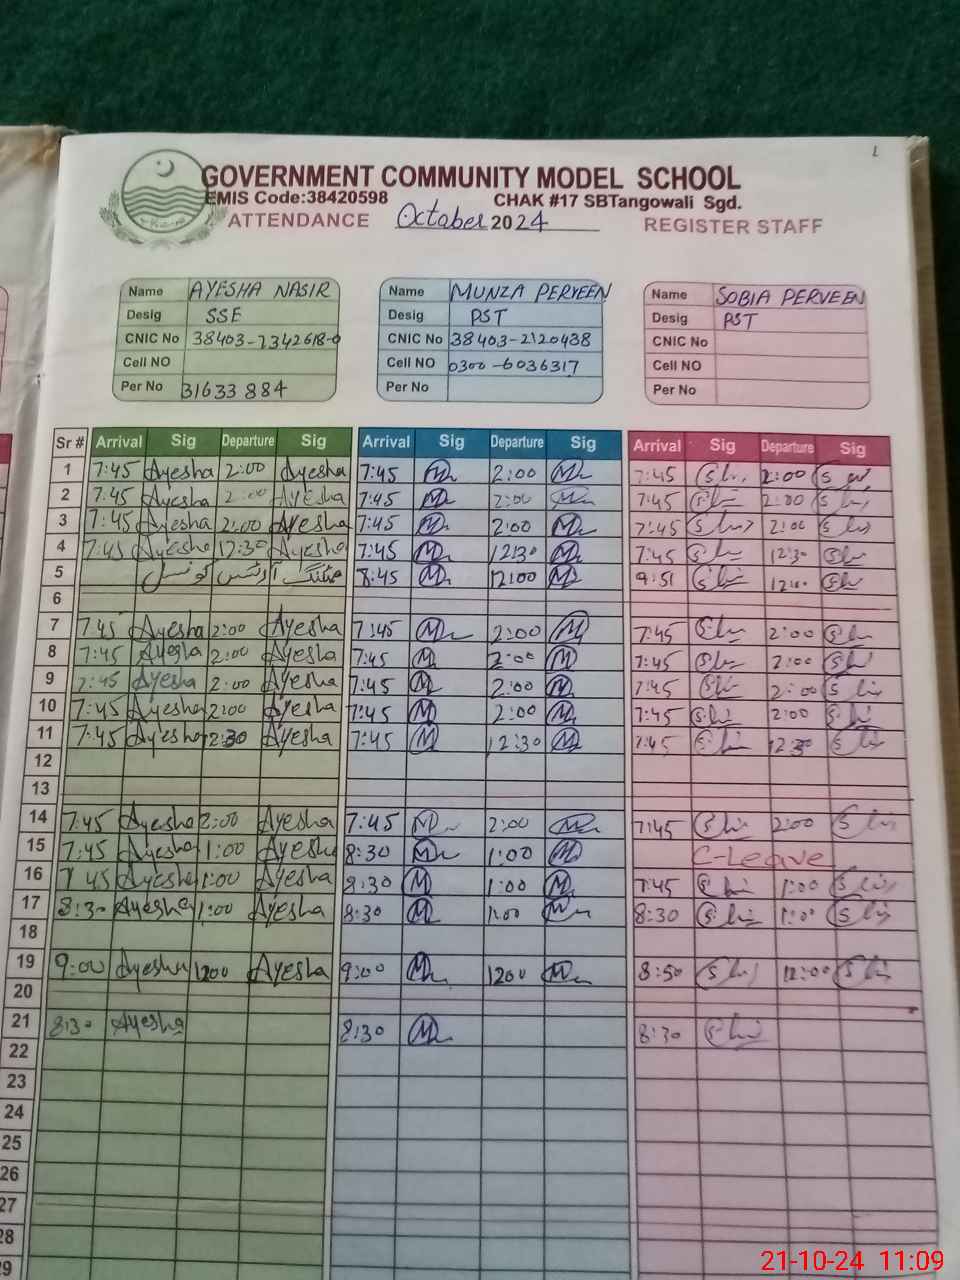 GOVERNMENT COMMUNITY MODEL SCHOOL
EMIS Code:38420598 CHAK #17 SBTangowali Sgd.
ATTENDANCE October 2024 REGISTER STAFF
Name AYESHA NASIR Name MUNZA PERVEEN Name SOBIA PERVEEN
Desig SSE Desig PST Desig PST
CNIC No 38403-7342618-0 CNIC No 38403-2120438 CNIC No
Cell NO Cell NO 0300-6036317 Cell NO
Per No 31633884 Per No Per No
Sr # Arrival Sig Departure Sig Arrival Sig Departure Sig Arrival Sig Departure Sig
1 7:45 Ayesha 2:00 Ayesha 7:45 2:00 7:45 2:00
2 7:45 Ayesha 2:00 Ayesha 7:45 2:00 7:45 2:00
3 7:45 Ayesha 2:00 Ayesha 7:45 2:00 7:45 2:00
4 7:45 Ayesha 12:30 Ayesha 7:45 12:30 7:45 12:30
5 میٹنگ آرٹس کونسل 8:45 12:00 9:51 12:00
6
7 7:45 Ayesha 2:00 Ayesha 7:45 2:00 7:45 2:00
8 7:45 Ayesha 2:00 Ayesha 7:45 2:00 7:45 2:00
9 7:45 Ayesha 2:00 Ayesha 7:45 2:00 7:45 2:00
10 7:45 Ayesha 2:00 Ayesha 7:45 2:00 7:45 2:00
11 7:45 Ayesha 12:30 Ayesha 7:45 12:30 7:45 12:30
12
13
14 7:45 Ayesha 2:00 Ayesha 7:45 2:00 7:45 2:00
15 7:45 Ayesha 1:00 Ayesha 8:30 1:00 C-Leave
16 7:45 Ayesha 1:00 Ayesha 8:30 1:00 7:45 1:00
17 8:30 Ayesha 1:00 Ayesha 8:30 1:00 8:30 1:00
18
19 9:00 Ayesha 1200 Ayesha 9:00 1200 8:50 12:00
20
21 8:30 Ayesha 8:30 8:30
22
23
24
25
26
27
28
29
21-10-24 11:09